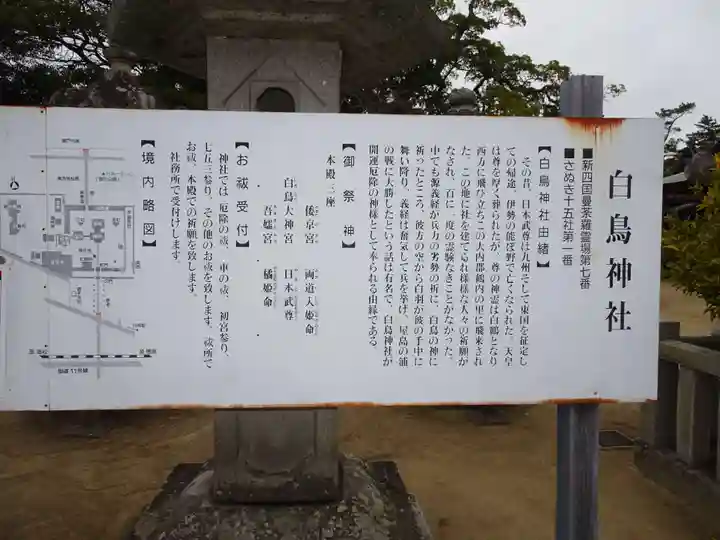 白鳥神社
■新四国曼荼羅霊場第七番
■さぬき十五社第一番
【白鳥神社由緒】
その昔、日本武尊は九州そして東国を征定し
ての帰途、伊勢の能ぼ野で亡くなられた。天皇
は尊を厚く葬られたが、尊の神霊は白鶴となり
西方に飛び立ちこの大内郡鶴内の里に飛来され
た。この地に社を建てられ様様な人々の祈願が
なされ、百に一度の霊験なきことがなかった。
中でも源義経が兵力の劣勢の折に、白鳥の神に
祈ったところ、彼方の空から白羽が彼の手中に
舞い降り、義経は奮気して兵を挙げ、屋島の浦
の戦に大勝したという話は有名で、白鳥神社が
開運厄除の神様として奉られる由縁である
【御祭神】
本殿三座
倭京宮 両道入姫命
白鳥大神宮 日本武尊
吾嬬宮 橘姫命
【お祓受付】
神社では、厄除の祓、車の祓、初宮参り、
七五三参り、その他のお祓を致します。祓所で
お祓、本殿での祈願を致します。
社務所で受付けします。
【境内略図】
国道11号線